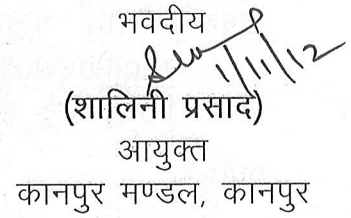 भवदीय
1/11/12
(शालिनी प्रसाद)
आयुक्त
कानपुर मण्डल, कानपुर